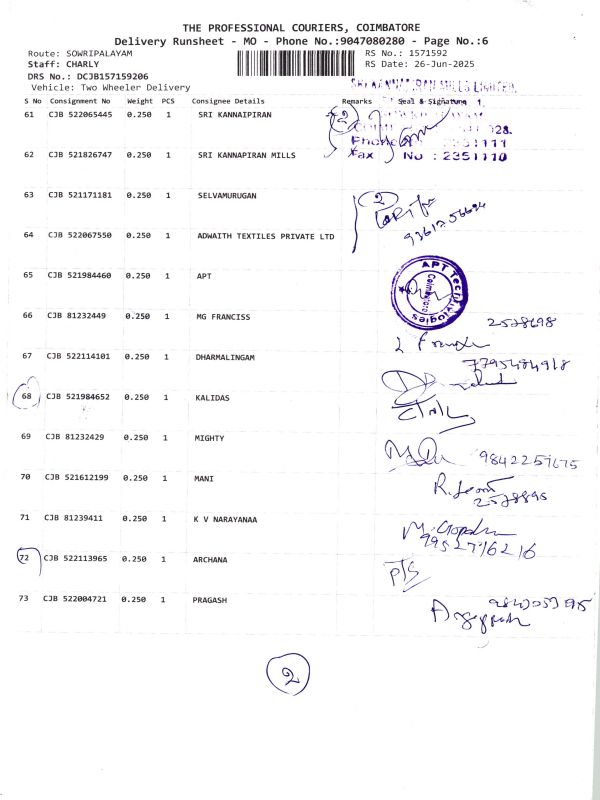 THE PROFESSIONAL COURIERS, COIMBATORE
Delivery Runsheet - MO - Phone No.:9047080280 - Page No.:6
Route: SOWRIPALAYAM RS No.: 1571592
Staff: CHARLY RS Date: 26-Jun-2025
DRS No.: DCJB157159206
Vehicle: Two Wheeler Delivery
S No Consignment No Weight PCS Consignee Details Remarks Seal & Signature
61 CJB 522065445 0.250 1 SRI KANNAIPIRAN 2
Phone 2351111
62 CJB 521826747 0.250 1 SRI KANNAPIRAN MILLS Fax No : 2351110
63 CJB 521171181 0.250 1 SELVAMURUGAN 2
64 CJB 522067550 0.250 1 ADWAITH TEXTILES PRIVATE LTD
65 CJB 521984460 0.250 1 APT APT Technologies Coimbatore
66 CJB 81232449 0.250 1 MG FRANCISS 2528698
67 CJB 522114101 0.250 1 DHARMALINGAM 7795484918
68 CJB 521984652 0.250 1 KALIDAS
69 CJB 81232429 0.250 1 MIGHTY 9842257675
70 CJB 521612199 0.250 1 MANI 2578895
71 CJB 81239411 0.250 1 K V NARAYANAA
9952716216
72 CJB 522113965 0.250 1 ARCHANA
73 CJB 522004721 0.250 1 PRAGASH
2